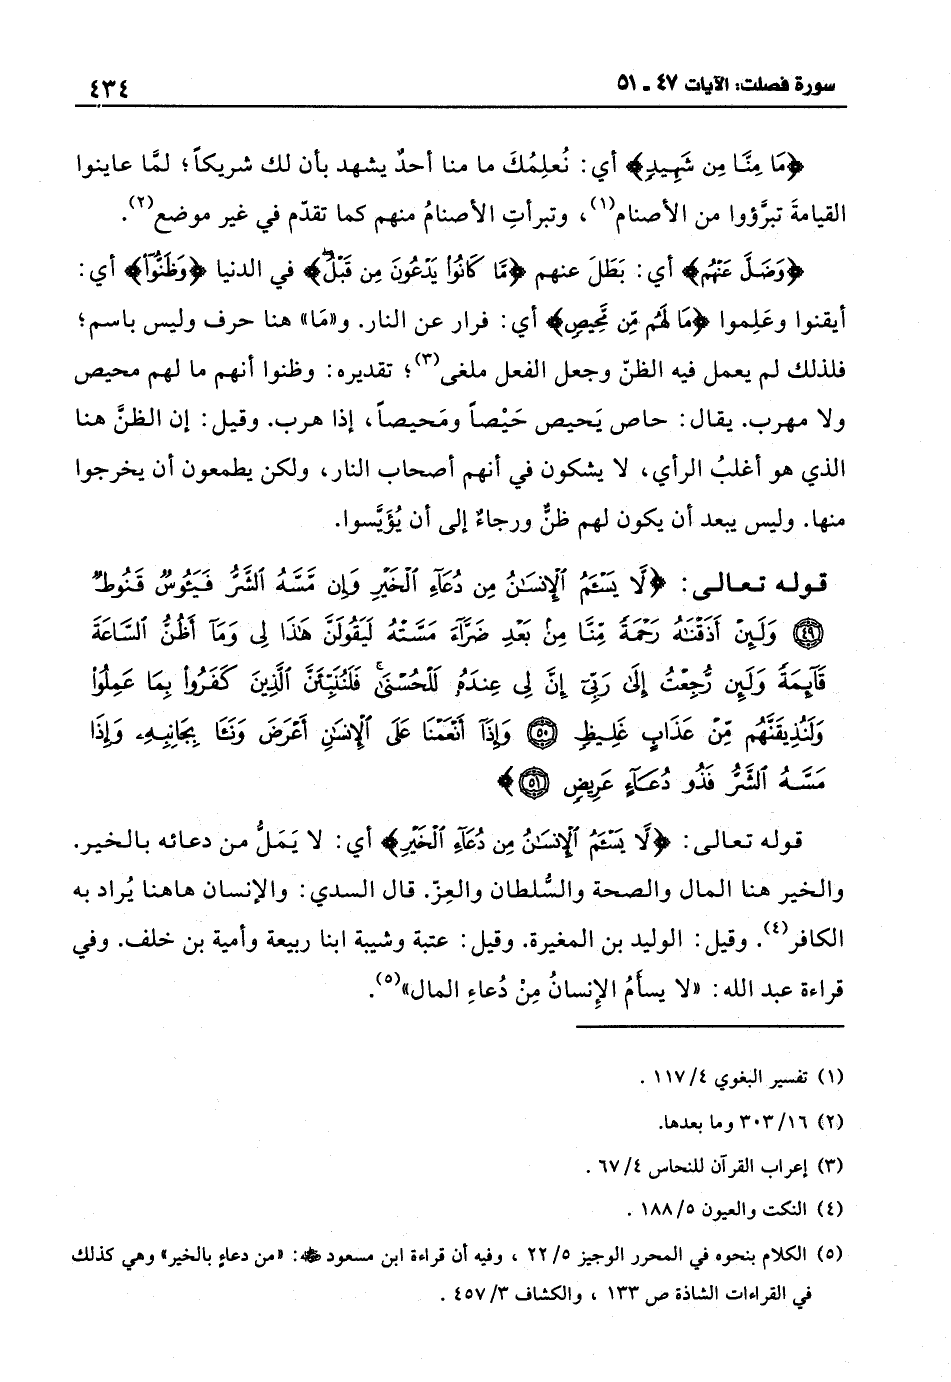 سورة فصلت: الآيات ٤٧ ـ ٥١
٤٣٤
﴿مَا مِنَّا مِن شَهِيدٍ﴾ أي: نُعلِمُكَ ما منا أحدٌ يشهد بأن لك شريكاً؛ لمَّا عاينوا
القيامةَ تبرَّؤوا من الأصنام(١)، وتبرأتِ الأصنامُ منهم كما تقدّم في غير موضع(٢).
﴿وَضَلَّ عَنْهُم﴾ أي: بَطَلَ عنهم ﴿مَّا كَانُوا۟ يَدْعُونَ مِن قَبْلُۖ﴾ في الدنيا ﴿وَظَنُّوا۟﴾ أي:
أيقنوا وعَلِموا ﴿مَا لَهُم مِّن مَّحِيصٍ﴾ أي: فرار عن النار. و«مَا» هنا حرف وليس باسم؛
فلذلك لم يعمل فيه الظنّ وجعل الفعل ملغى(٣)؛ تقديره: وظنوا أنهم ما لهم محيص
ولا مهرب. يقال: حاص يَحيص حَيْصاً ومَحيصاً، إذا هرب. وقيل: إن الظنَّ هنا
الذي هو أغلبُ الرأي، لا يشكون في أنهم أصحاب النار، ولكن يطمعون أن يخرجوا
منها. وليس يبعد أن يكون لهم ظنٌّ ورجاءٌ إلى أن يُؤَيَّسوا.
قوله تعالى: ﴿لَّا يَسْـَٔمُ ٱلْإِنسَـٰنُ مِن دُعَآءِ ٱلْخَيْرِ وَإِن مَّسَّهُ ٱلشَّرُّ فَيَـُٔوسٌ قَنُوطٌ
٤٩ وَلَئِنْ أَذَقْنَـٰهُ رَحْمَةً مِّنَّا مِنۢ بَعْدِ ضَرَّآءَ مَسَّتْهُ لَيَقُولَنَّ هَـٰذَا لِى وَمَآ أَظُنُّ ٱلسَّاعَةَ
قَآئِمَةً وَلَئِن رُّجِعْتُ إِلَىٰ رَبِّىٓ إِنَّ لِى عِندَهُۥ لَلْحُسْنَىٰۚ فَلَنُنَبِّئَنَّ ٱلَّذِينَ كَفَرُوا۟ بِمَا عَمِلُوا۟
وَلَنُذِيقَنَّهُم مِّنْ عَذَابٍ غَلِيظٍ ٥٠ وَإِذَآ أَنْعَمْنَا عَلَى ٱلْإِنسَـٰنِ أَعْرَضَ وَنَـَٔا بِجَانِبِهِۦ وَإِذَا
مَسَّهُ ٱلشَّرُّ فَذُو دُعَآءٍ عَرِيضٍ ٥١﴾
قوله تعالى: ﴿لَّا يَسْـَٔمُ ٱلْإِنسَـٰنُ مِن دُعَآءِ ٱلْخَيْرِ﴾ أي: لا يَمَلُّ من دعائه بالخير.
والخير هنا المال والصحة والسُّلطان والعِزّ. قال السدي: والإنسان هاهنا يُراد به
الكافر(٤). وقيل: الوليد بن المغيرة. وقيل: عتبة وشيبة ابنا ربيعة وأمية بن خلف. وفي
قراءة عبد الله: «لا يسأَمُ الإِنسانُ مِنْ دُعاءِ المال»(٥).
(١) تفسير البغوي ٤/ ١١٧ .
(٢) ١٦/ ٣٠٣ وما بعدها.
(٣) إعراب القرآن للنحاس ٤/ ٦٧ .
(٤) النكت والعيون ٥/ ١٨٨ .
(٥) الكلام بنحوه في المحرر الوجيز ٥/ ٢٢ ، وفيه أن قراءة ابن مسعود ﷺ: «من دعاءٍ بالخير» وهي كذلك
في القراءات الشاذة ص ١٣٣ ، والكشاف ٣/ ٤٥٧ .